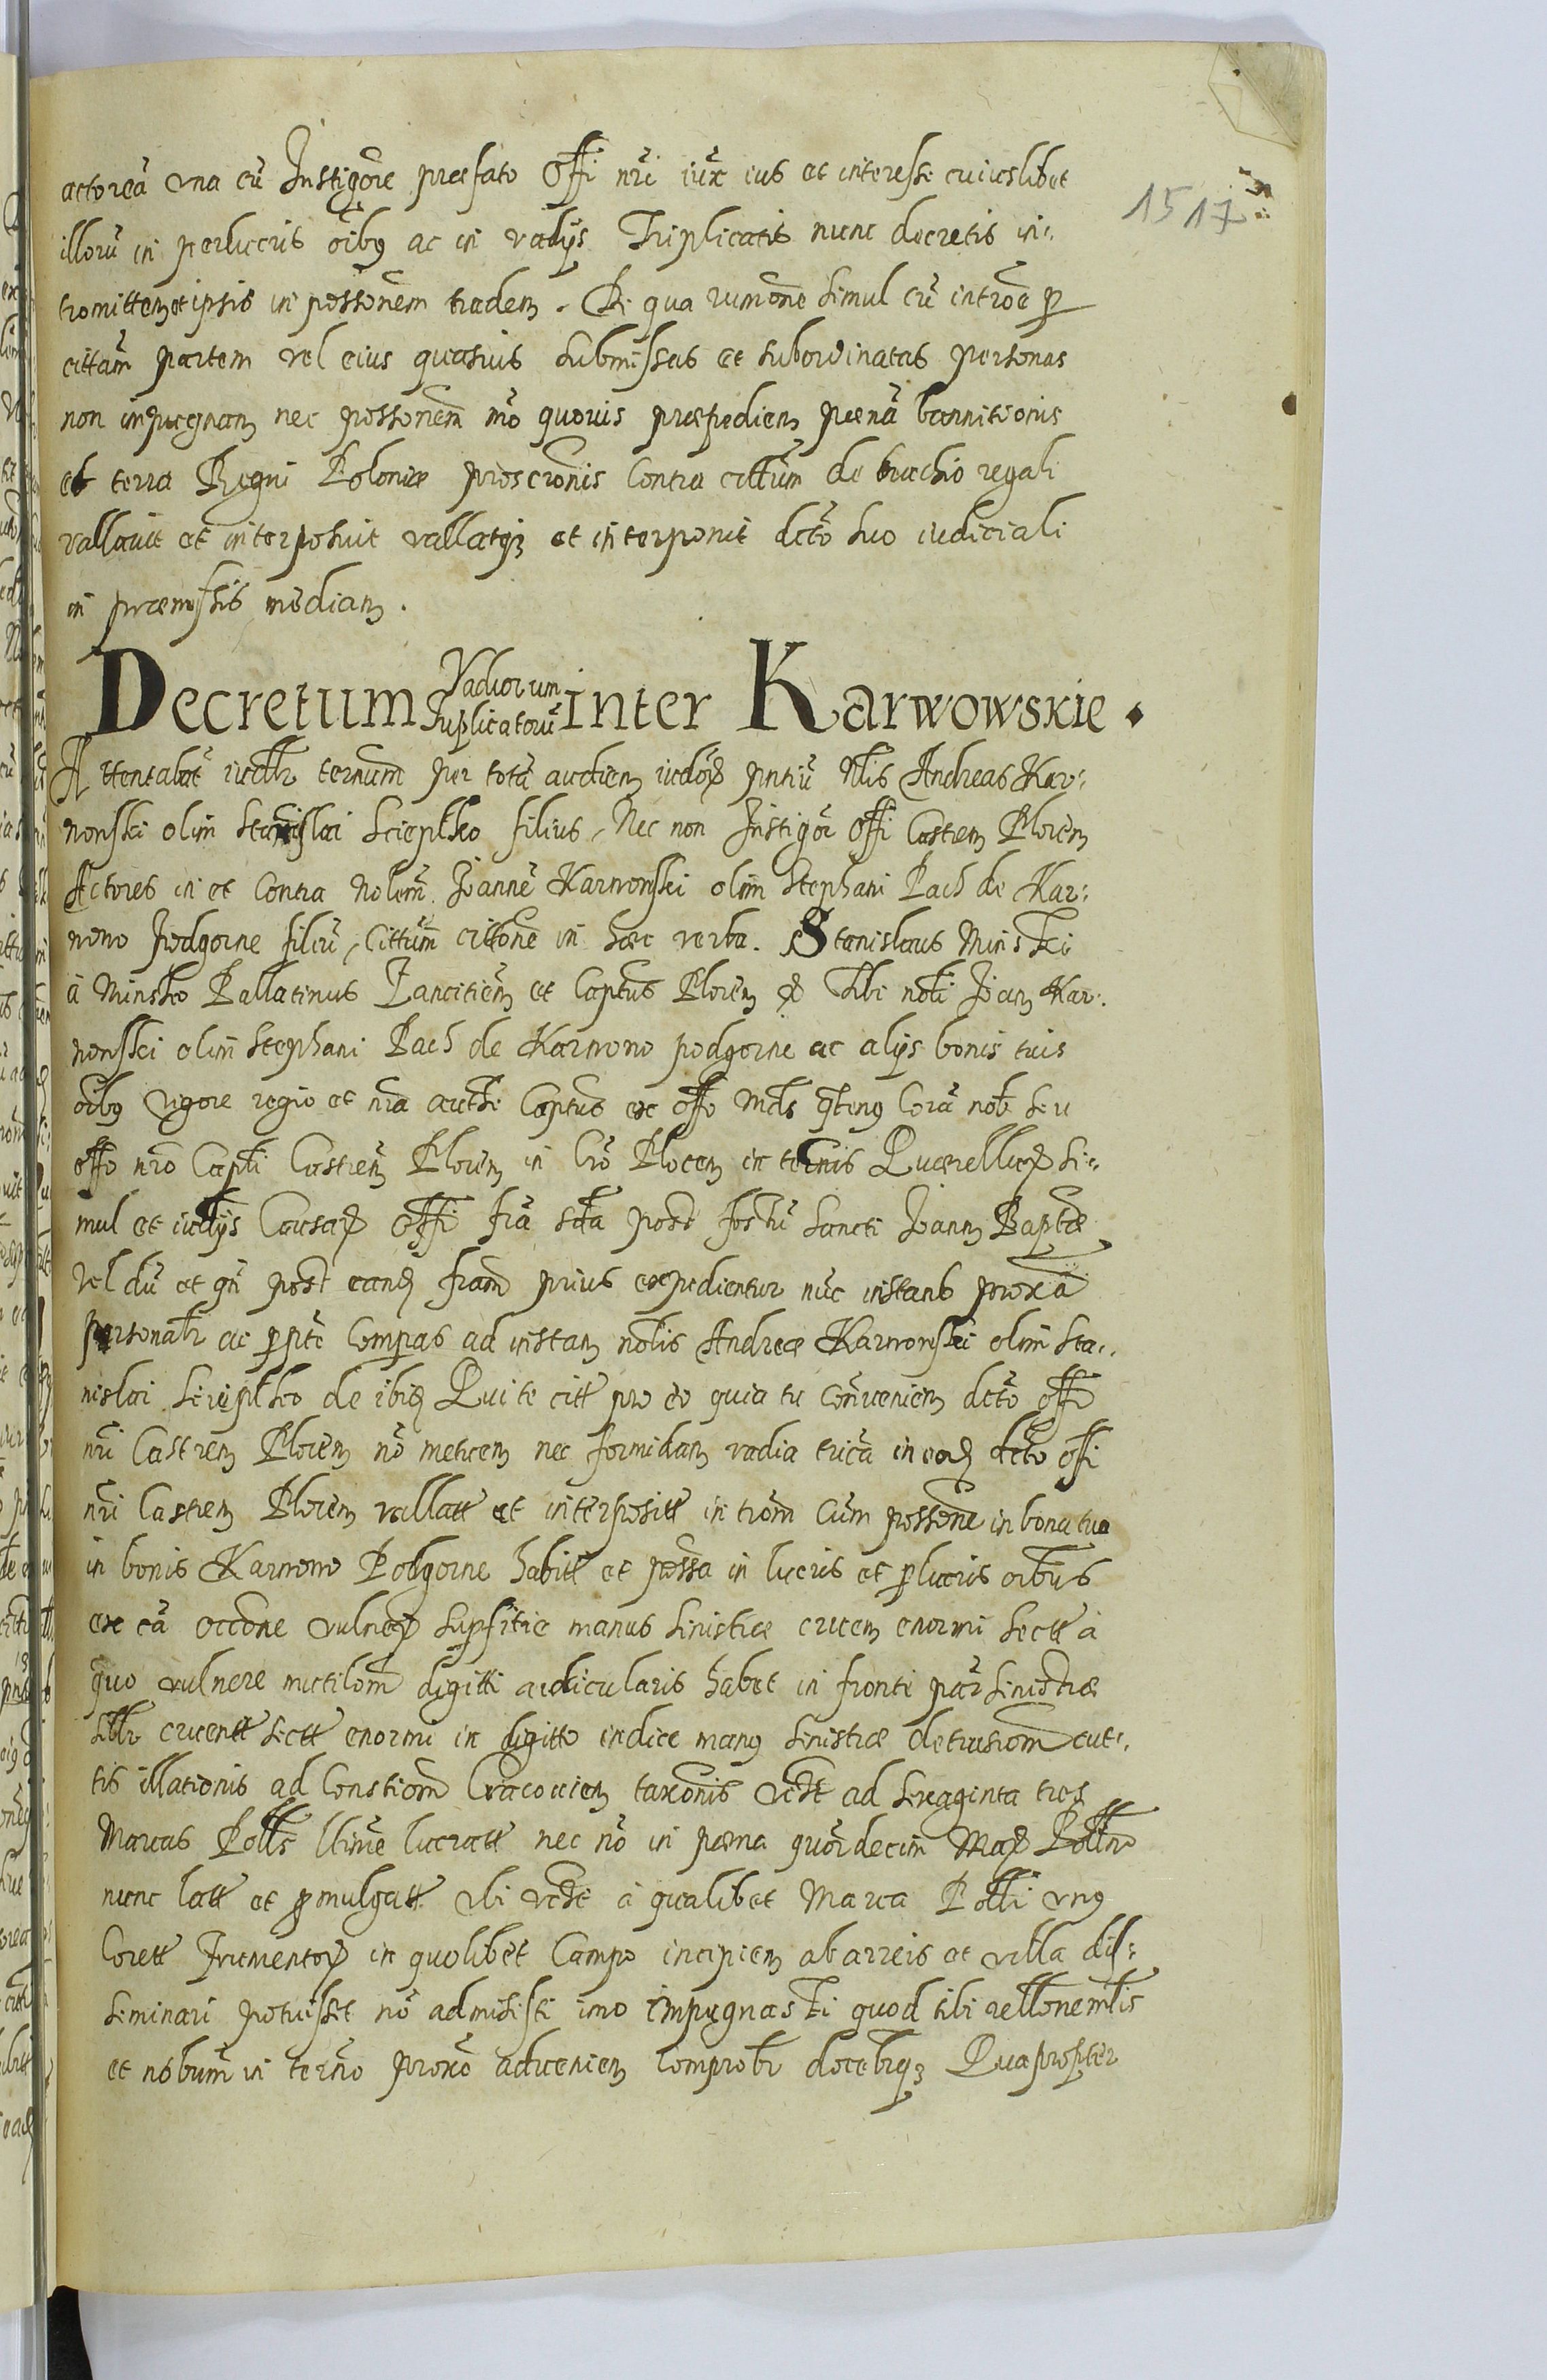 actoreã vna cũ Instigõre præfato Offi nrĩ iux̃ ius et interesse cuiuslibet
illorũ in perlucris oĩbꝯ ac in vadijs Triplicatis nunc decretis in-
tromitteñ et ipsis in possonẽm tradeñ. De qua rumone simul cũ introẽ p
cittam̃ partem vel eius quasuis submissas et subordinatas personas
non impugnañ nec possonẽm mõ quouis præpedieñ pœnã bannitionis
et terra Regni Poloniæ proscronis̃ contra cittũm de brachio regali
vallauit et interposuit vallatqȝ et interponit dctõ suo iudiciali
in præmissis mediañ.
Decretum Vadiorum Triplicatorũ inter Karwowskie.
Attentabãt iudlr̃ ternum̃ per totã audieñ iudoꝝ pntiũ Nlis Andreas Kar-
wowski olim Stanislai Scieptko filius, Nec non Instigõr offi Castreñ Ploceñ
Actores in et Contra Nolem̃ Ioannẽ Karwowski olim Stephani Pach de Kar-
wowo Podgorne filiũ, Cittũm cittonẽ in hæc verba. Stanislaus Minski
à Minsko Pallatinus Lancitieñ et Captũs Ploceñ Tibi nobli Ioañ Kar-
wowski olim Stephani Pach de Karwowo podgorne ac alijs bonis tuis
oĩbꝯ rigore regio et nrã authe Captũs ex offo Mds qtenꝯ Corã nob̃ seu
offo nrõ Capti Castreñ Ploceñ in Crõ Ploceñ in ternis Quærellaꝝ si-
mul et iudijs Causaꝝ Offi friã scda post festũ Sancti Ioanñ Baptæ
vel dũ et qñ post eand friam̃ prius expedientur nũc instanb proxã
personalr̃ ac ppte Compeas ad instañ nolis Andreæ Karwowski olim Sta-
nislai Scieptko de ibid Qui te citt pro eo quia tu Conueniẽm dctõ offo
nrĩ Castreñ Ploceñ nõ metueñ nec formidañ vadia tricã in eod dctõ offi
nrĩ Castreñ Ploceñ vallatt et interposita in trom̃ cũm possonẽ in bona tua
in bonis Karwowo Podgorne habitt et possa in lucris et plucris oĩbus
ex eã occõne vulneꝝ supfitie manus sinistræ crueñ enormi sectt à
quo vulnere mutilom̃ digitti auricularis habet in fronti par̃ sinistræ
sitlr cruentt sectt enormi in digitto indice manꝯ sinistræ detrusiom̃ cut-
tis illationis ad Constiom̃ Cracouieñ taxonĩs vdtt ad sexaginta tres
Marcas Polls ltime lucratt nec nõ in pœna quordecim Maꝝ Pollm̃
nunc latt et pmulgatt vbi vdtt à qualibet Marca Polli vnꝯ
Corett Frumentoꝝ in quolibet Campo incipieñ ab arreis et villa dis-
seminari potuisset nõ admisisti imo impugnasti quod tibi rellonemtis
et nõbum in ternõ proxõ adueniem̃ comprobr̃ docebrqȝ Quapropter
1517